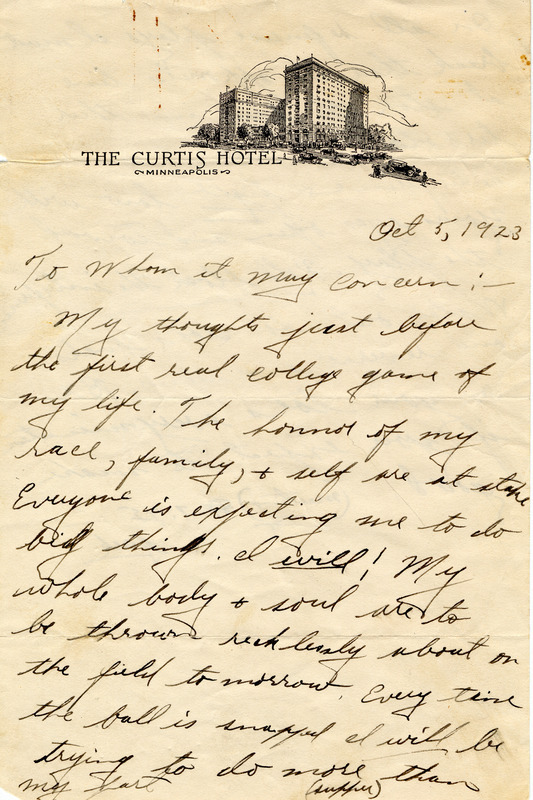 THE CURTIS HOTEL
MINNEAPOLIS
Oct 5, 1923
To Whom it may concern :-
My thoughts just before
the first real college game of
my life. The honnor of my
race, family, & self are at stake
Everyone is expecting me to do
big things. I will! My
whole body & soul are to
be thrown recklessly about on
the field tomorrow. Every time
the ball is snapped I will be
trying to do more than
my part (supper)